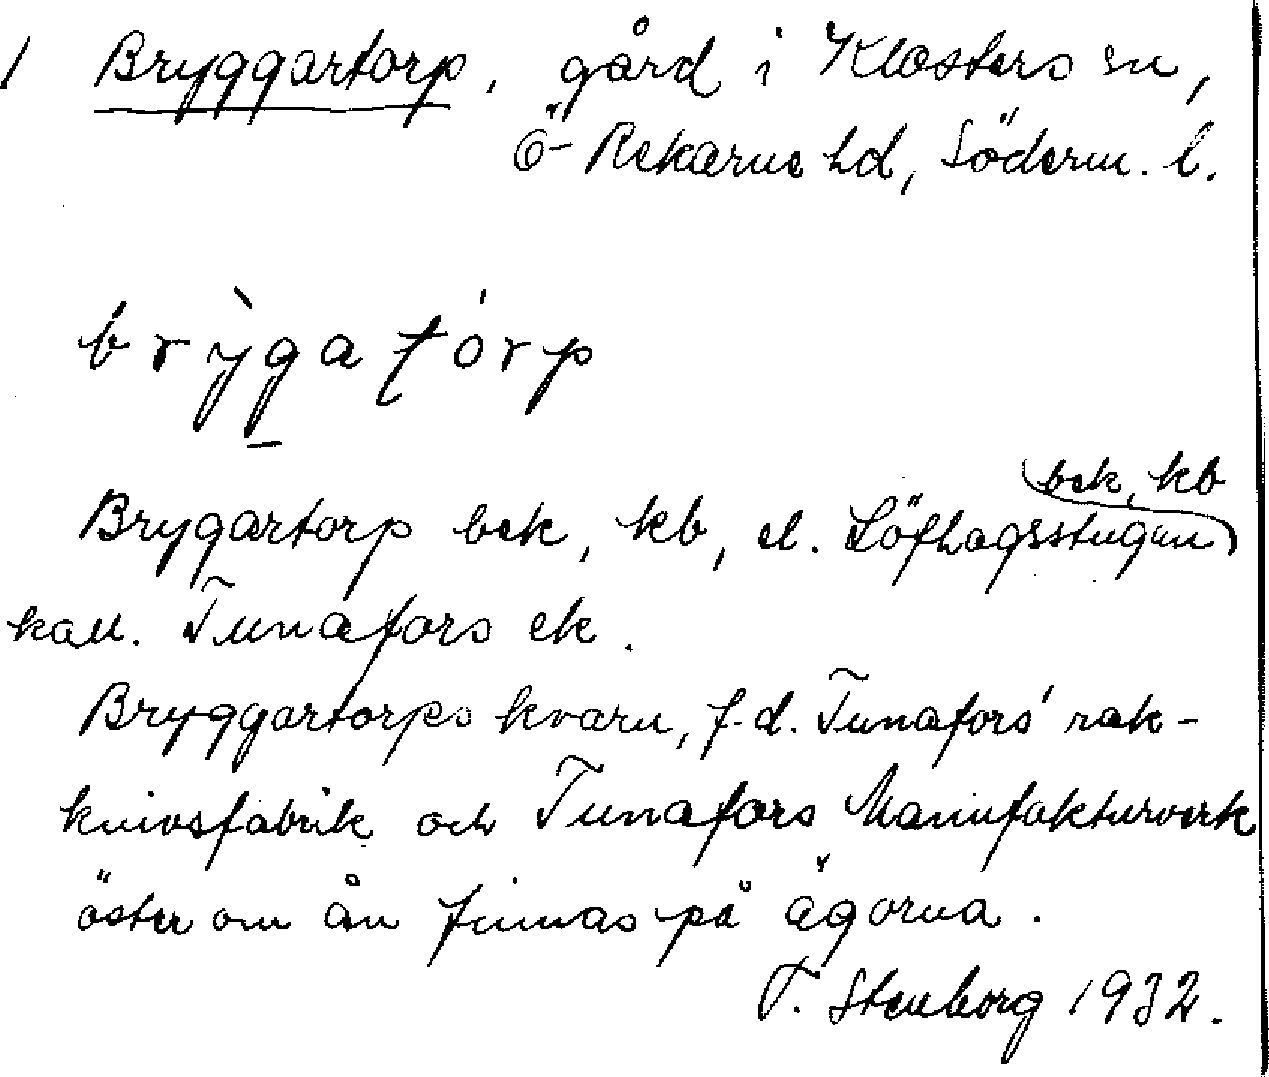 1 Bryggartorp, gård i Klosters sn,
Ö- Rekarne hd, Söderm. l.
brỳgatórp
bek, kb
Brygartorp bek, kb, el. Löfhagsstugan
kall. Tunafors ek.
Bryggartorps kvarn, f.d. Tunafors' rak-
knivsfabrik och Tunafors Manufakturverk
öster om ån finnas på ägorna.
T. Stenborg 1932.